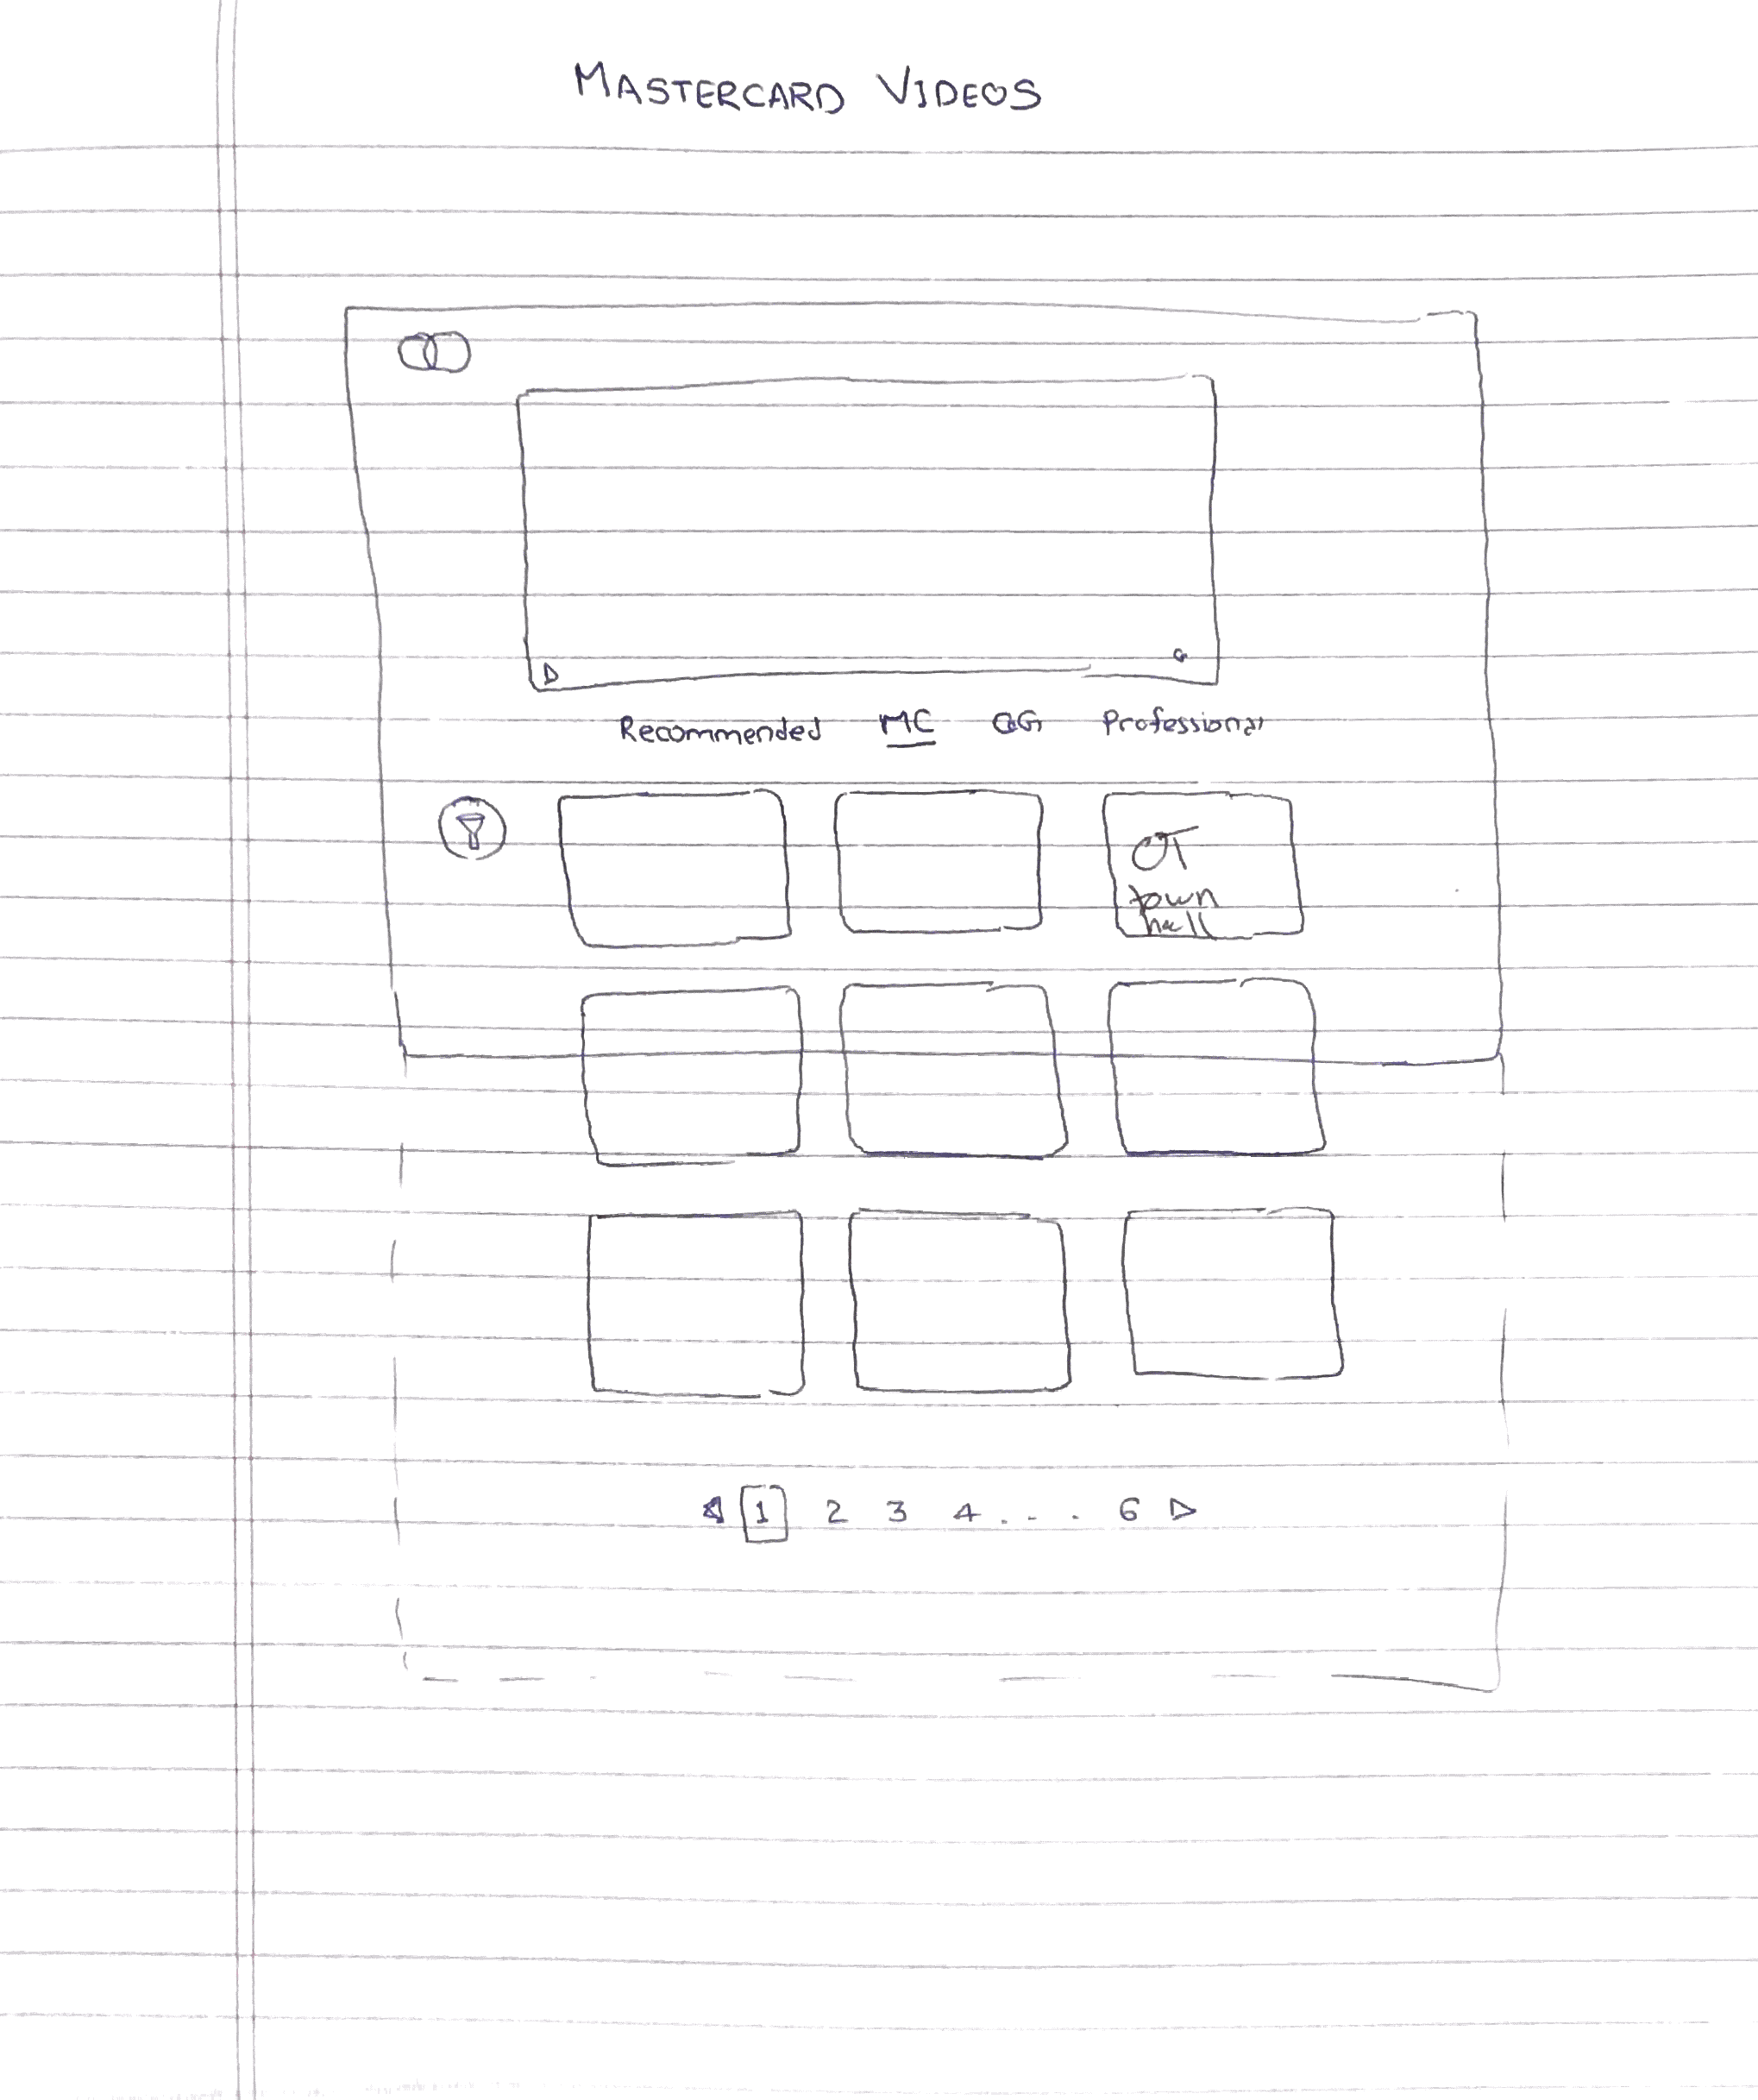 MASTERCARD VIDEOS
Recommended MC GG Professional
OT
town
hall
1 2 3 4 . . . . 6